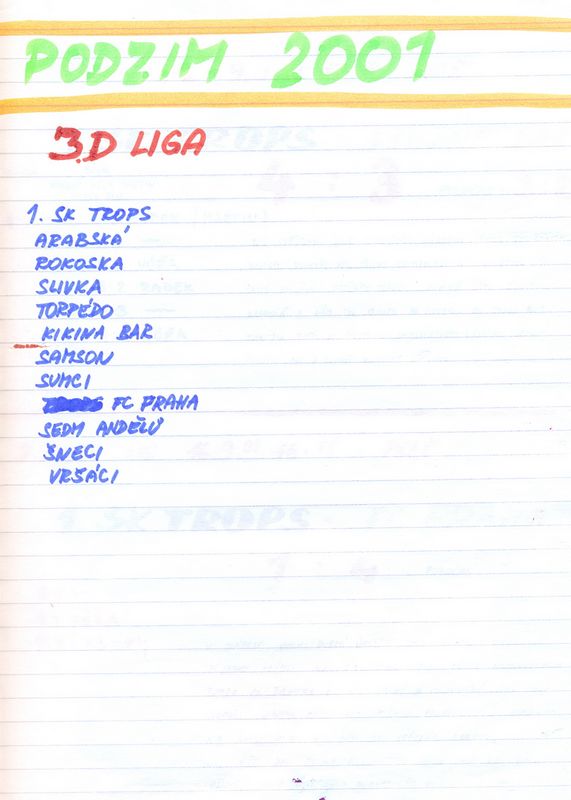 PODZIM 2001
3.D LIGA
1. SK TROPS
ARABSKÁ
ROKOSKA
SLIVKA
TORPÉDO
KIKINA BAR
SAMSON
SUMCI
FC PRAHA
SEDM ANDĚLŮ
ŠNECI
VRŠÁCI